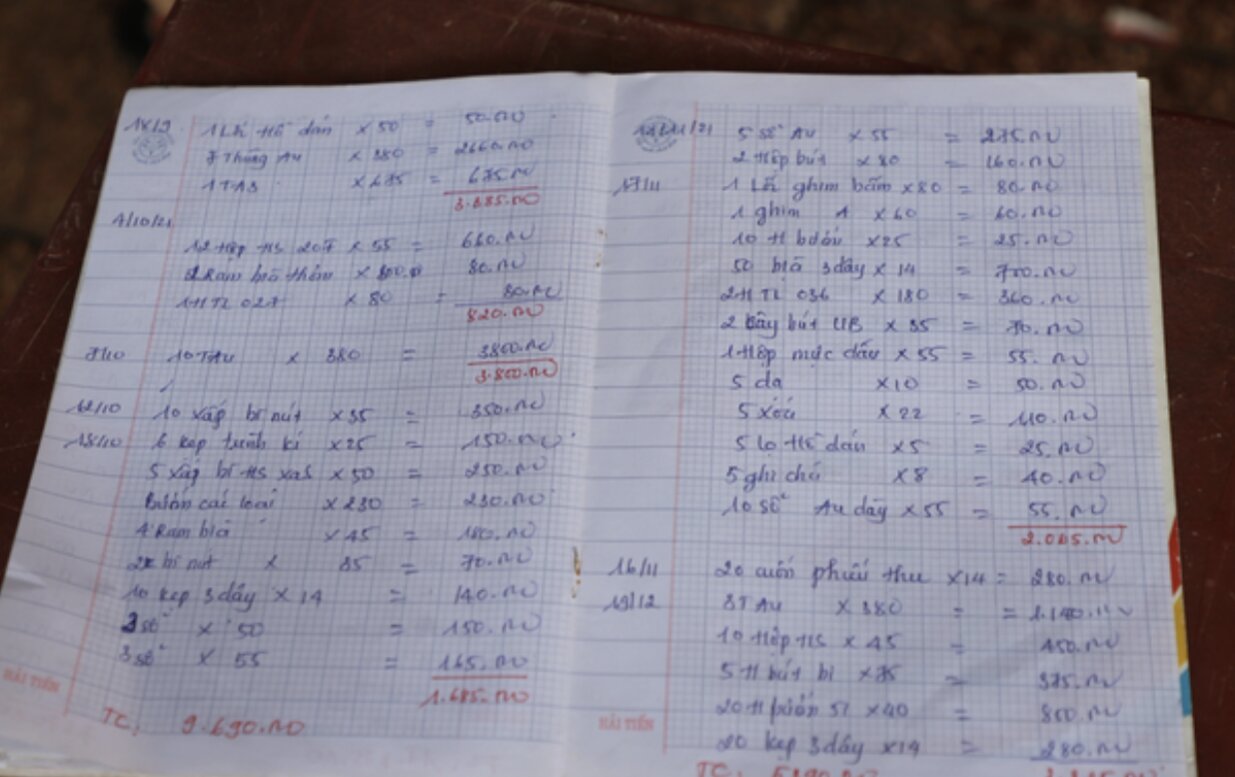 18/9 1 Lk Hồ dán x50 = 50.00
7 Thùng Au x 380 = 2660.00
1 TA3 x 675 = 675.00
3.385.00
4/10/21
12 Hộp HS 207 x 55 = 660.00
2 Ram bìa thơm x 80.0 80.00
1 H TL 027 x 80 = 80.00
820.00
7/10 10 TAu x 380 = 3800.00
3.800.00
12/10 10 xấp bì nút x35 = 350.00
13/10 6 kẹp trình kí x25 = 150.00
5 xấp bì HS x50 = 250.00
các loại x 230 = 230.00
4 Ram bìa x45 = 180.00
2x bì nút x 35 = 70.00
10 kẹp 3 dây x 14 = 140.00
3 sổ x 50 = 150.00
3 sổ x 55 = 165.00
1.685.00
HẢI TIẾN
TC: 9.690.00
/11/21 5 sổ Au x 55 = 275.00
2 Hộp bút x 80 = 160.00
17/11 1 Lk ghim bấm x80 = 80.00
1 ghim x60 = 60.00
10 H x25 = 25.00
50 bìa 3 dây x 14 = 700.00
2 H TL 036 x 180 = 360.00
2 cây bút UB x 35 = 70.00
1 Hộp mực dấu x 55 = 55.00
5 da x10 = 50.00
5 xóa x 22 = 110.00
5 lọ Hồ dán x5 = 25.00
5 ghi chú x8 = 40.00
10 sổ Au dày x 55 = 55.00
2.065.00
16/11 20 cuốn phiếu thu x14 = 280.00
19/12 3T Au x 380 = = 1.140.00
10 Hộp HS x 45 = 450.00
5 H bút bi x 75 = 375.00
20 H 51 x40 = 800.00
HẢI TIẾN
20 kẹp 3 dây x14 = 280.00
TC: